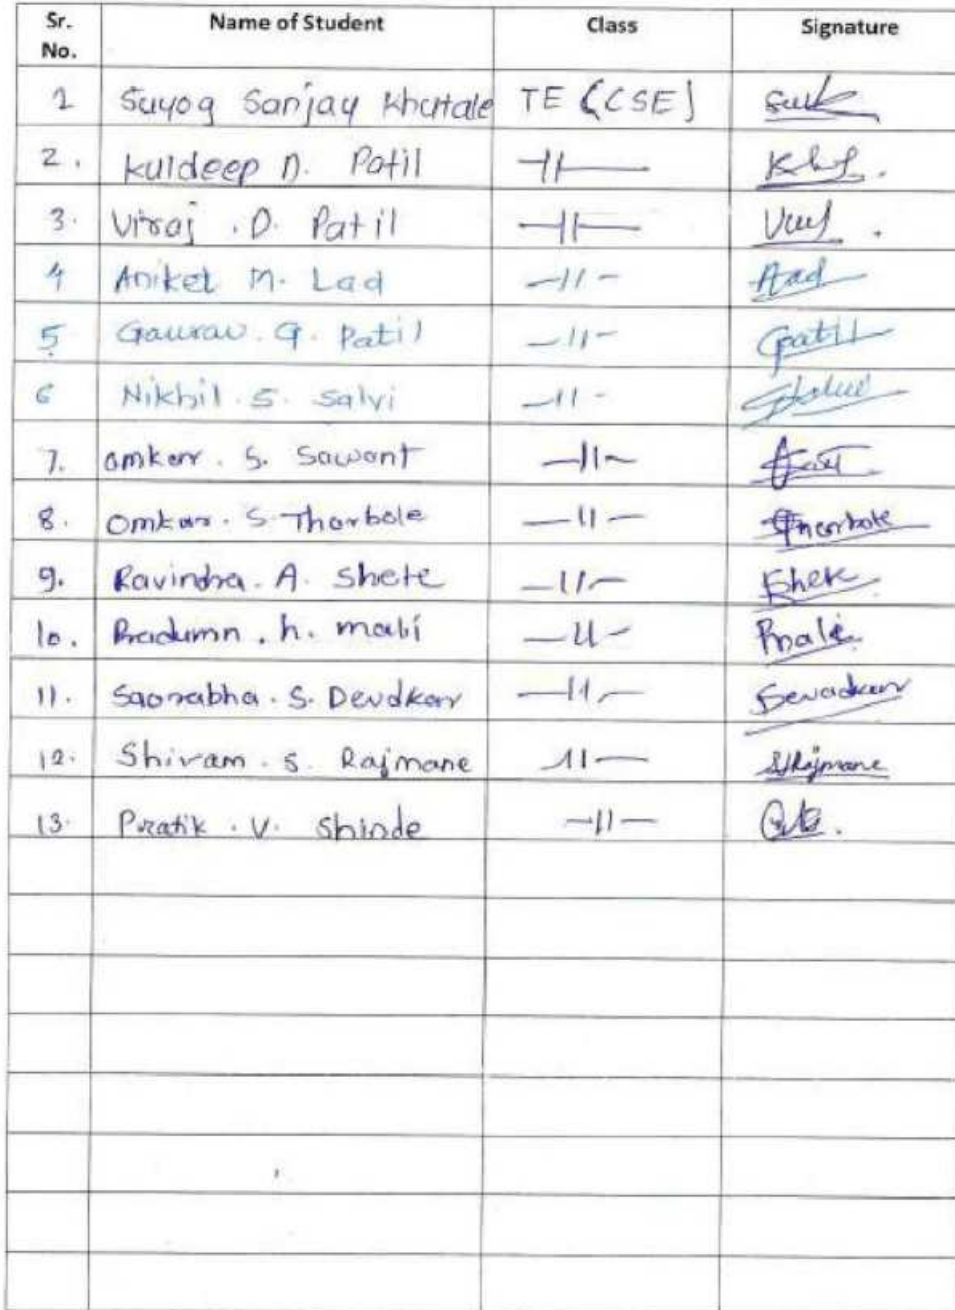 Sr. No. Name of Student Class Signature
1 Suyog Sanjay Khutale TE (CSE)
2. Kuldeep D. Patil —||—
3. Viraj . D. Patil —||—
4 Aniket M. Lad —||— Aad
5 Gaurav. G. Patil —||— Gpatil
6 Nikhil. S. Salvi —||—
7. omkar. S. Sawant —||—
8. Omkar. S. Thorbole —||— Thorbole
9. Ravindra. A. Shete —||— Shete
10. Pradumn . h. mali —||— Pmali
11. Saorabha. S. Devdkar —||— Devadkar
12. Shivam . S. Rajmane —||— SSRajmane
13. Pratik . V. Shinde —||—